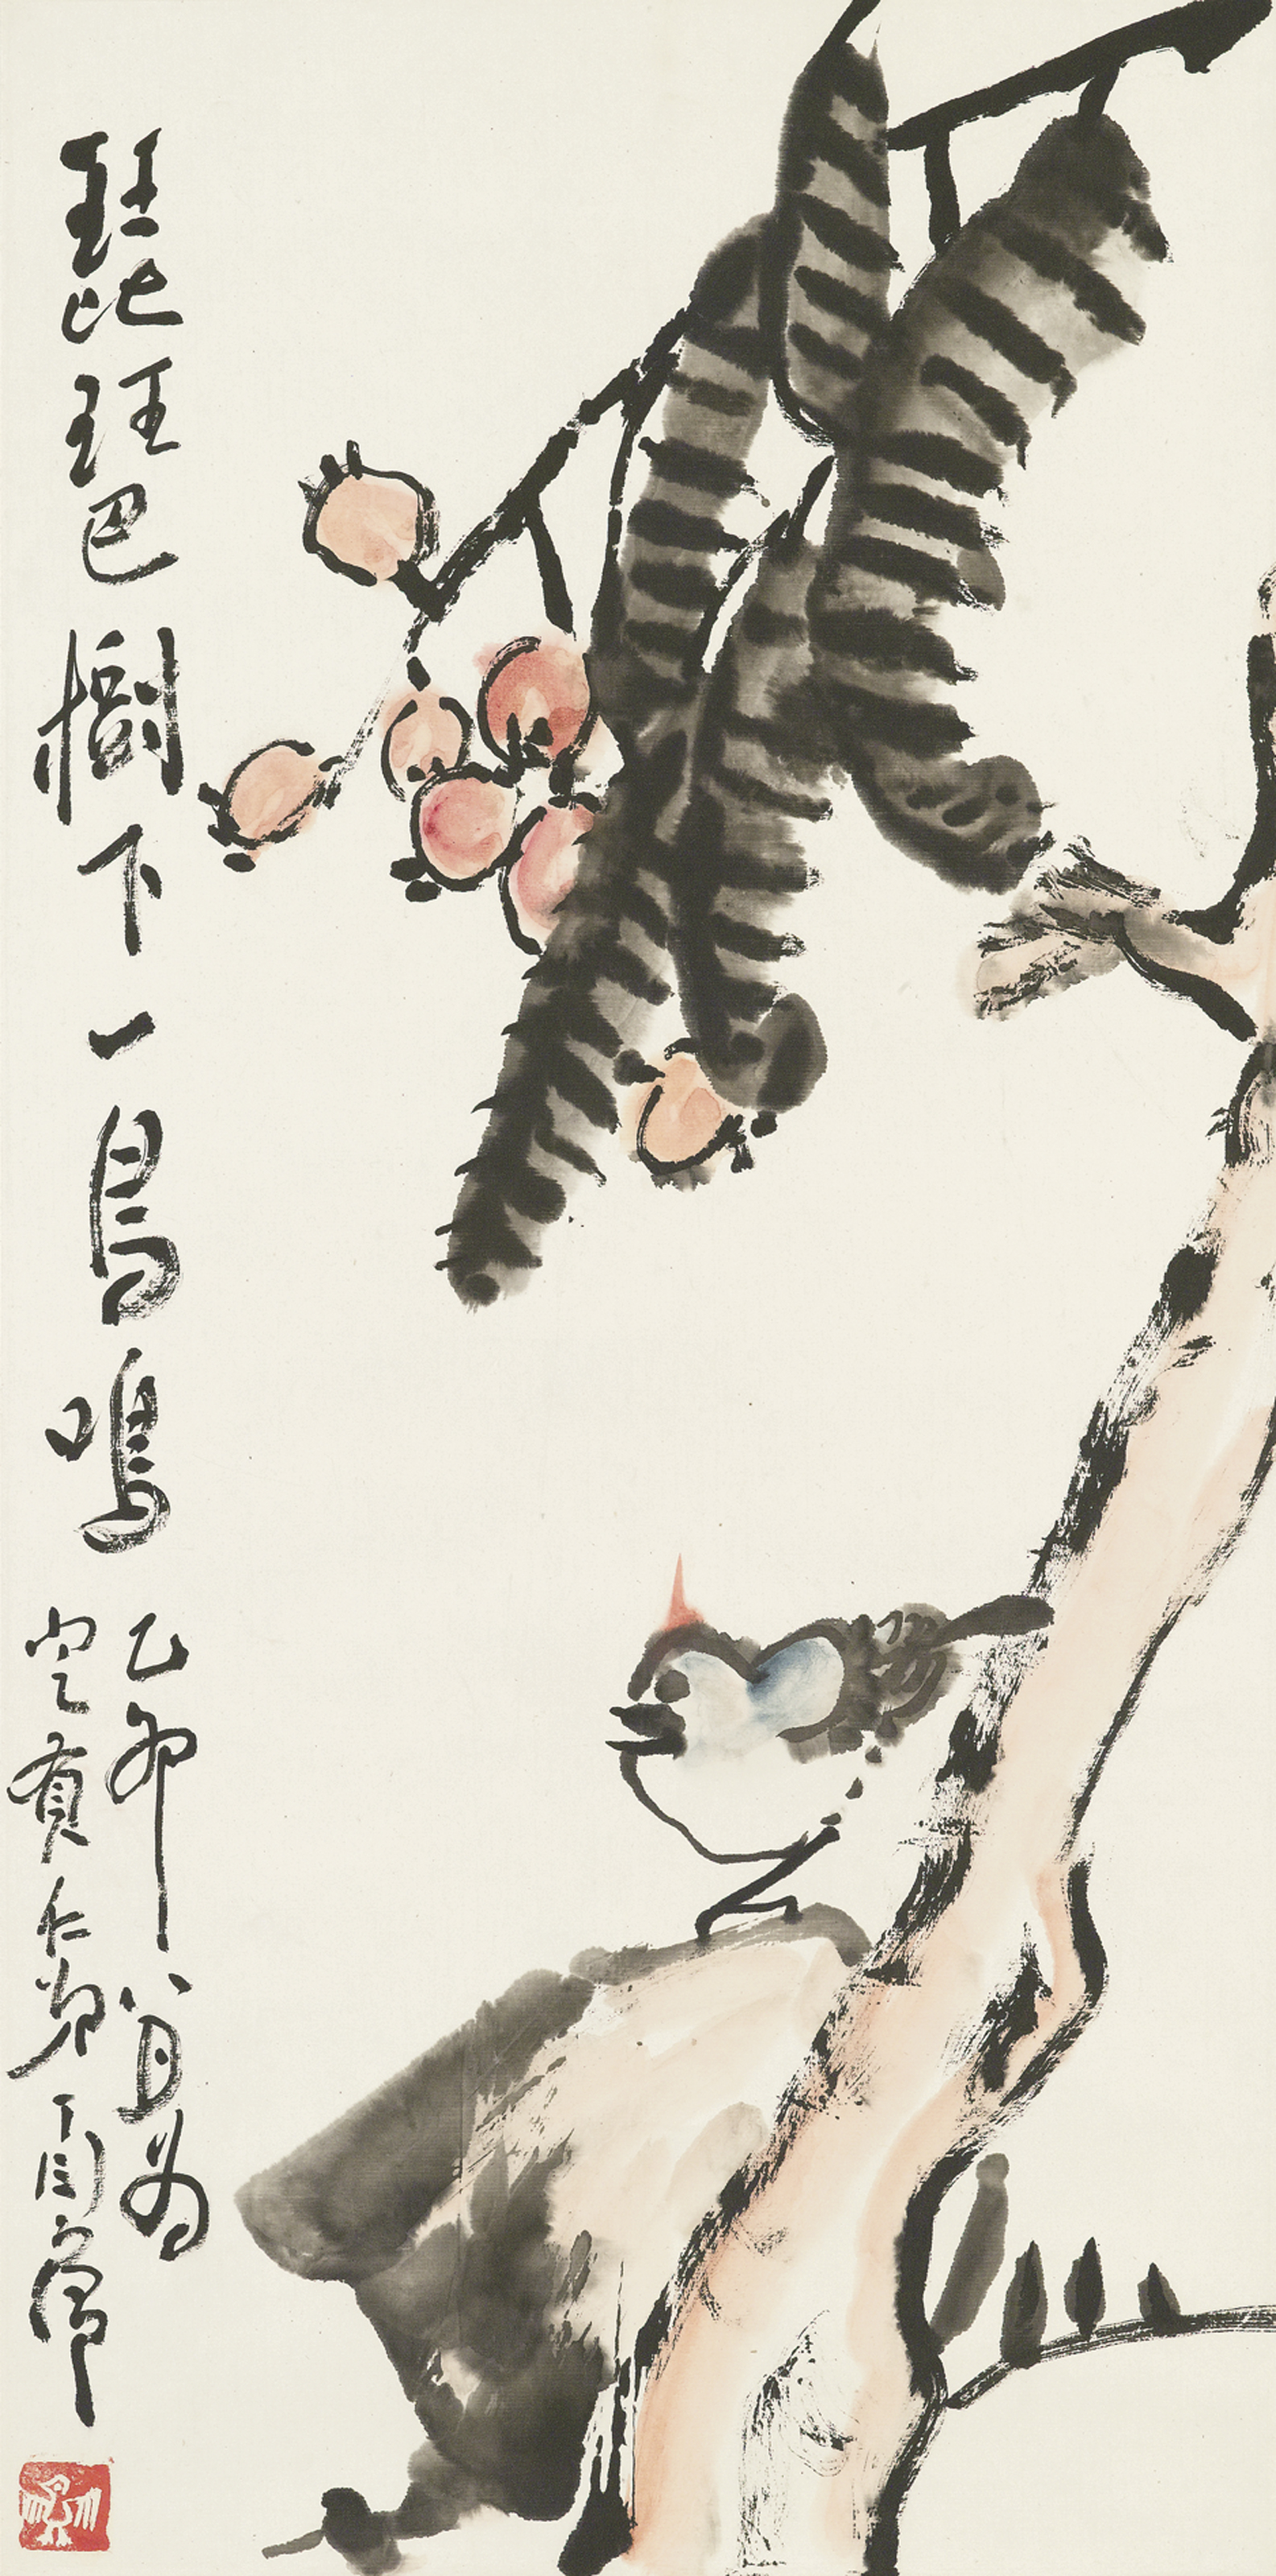 琵琶樹下一鳥鳴
乙卯八月為
仁弟丁衍庸